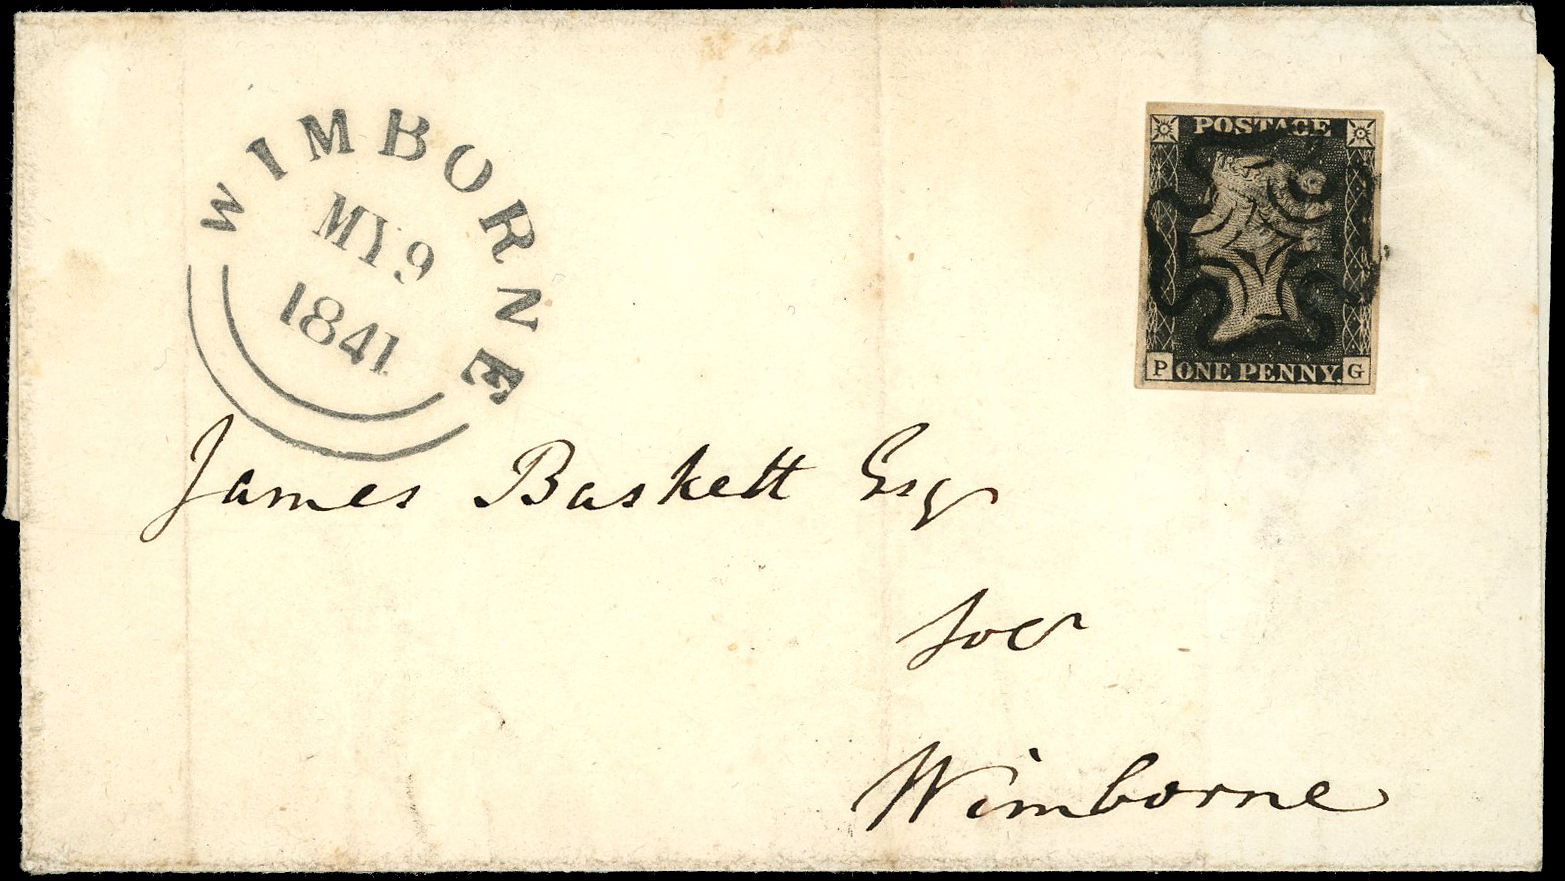 WIMBORNE
MY 9
1841
POSTAGE
P ONE PENNY. G
James Baskett Esqr
Wimborne